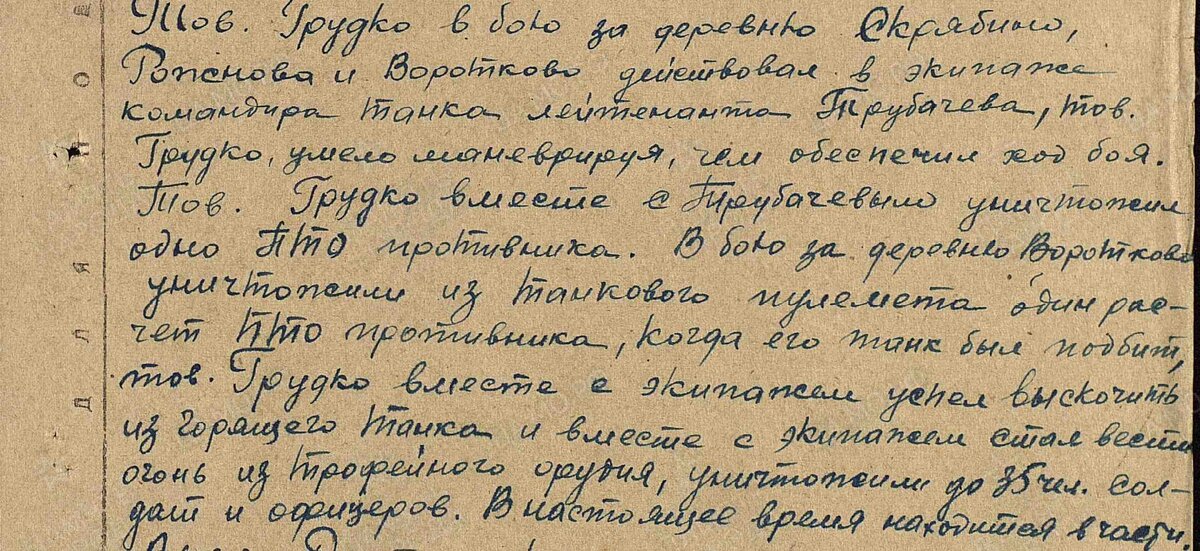 Тов. Грудко в бою за деревню Скрябино,
Рожнова и Воротково действовал в экипаже
командира танка лейтенанта Трубачева, тов.
Грудко, умело маневрируя, чем обеспечил ход боя.
Тов. Грудко вместе с Трубачевым уничтожил
одно ПТО противника. В бою за деревню Воротково
уничтожили из танкового пулемета один рас-
чет ПТО противника, когда его танк был подбит,
тов. Грудко вместе с экипажем успел выскочить
из горящего танка и вместе с экипажем стал вести
огонь из трофейного орудия, уничтожили до 35 чел. сол-
дат и офицеров. В настоящее время находится в части.
Д Л Я П О Д